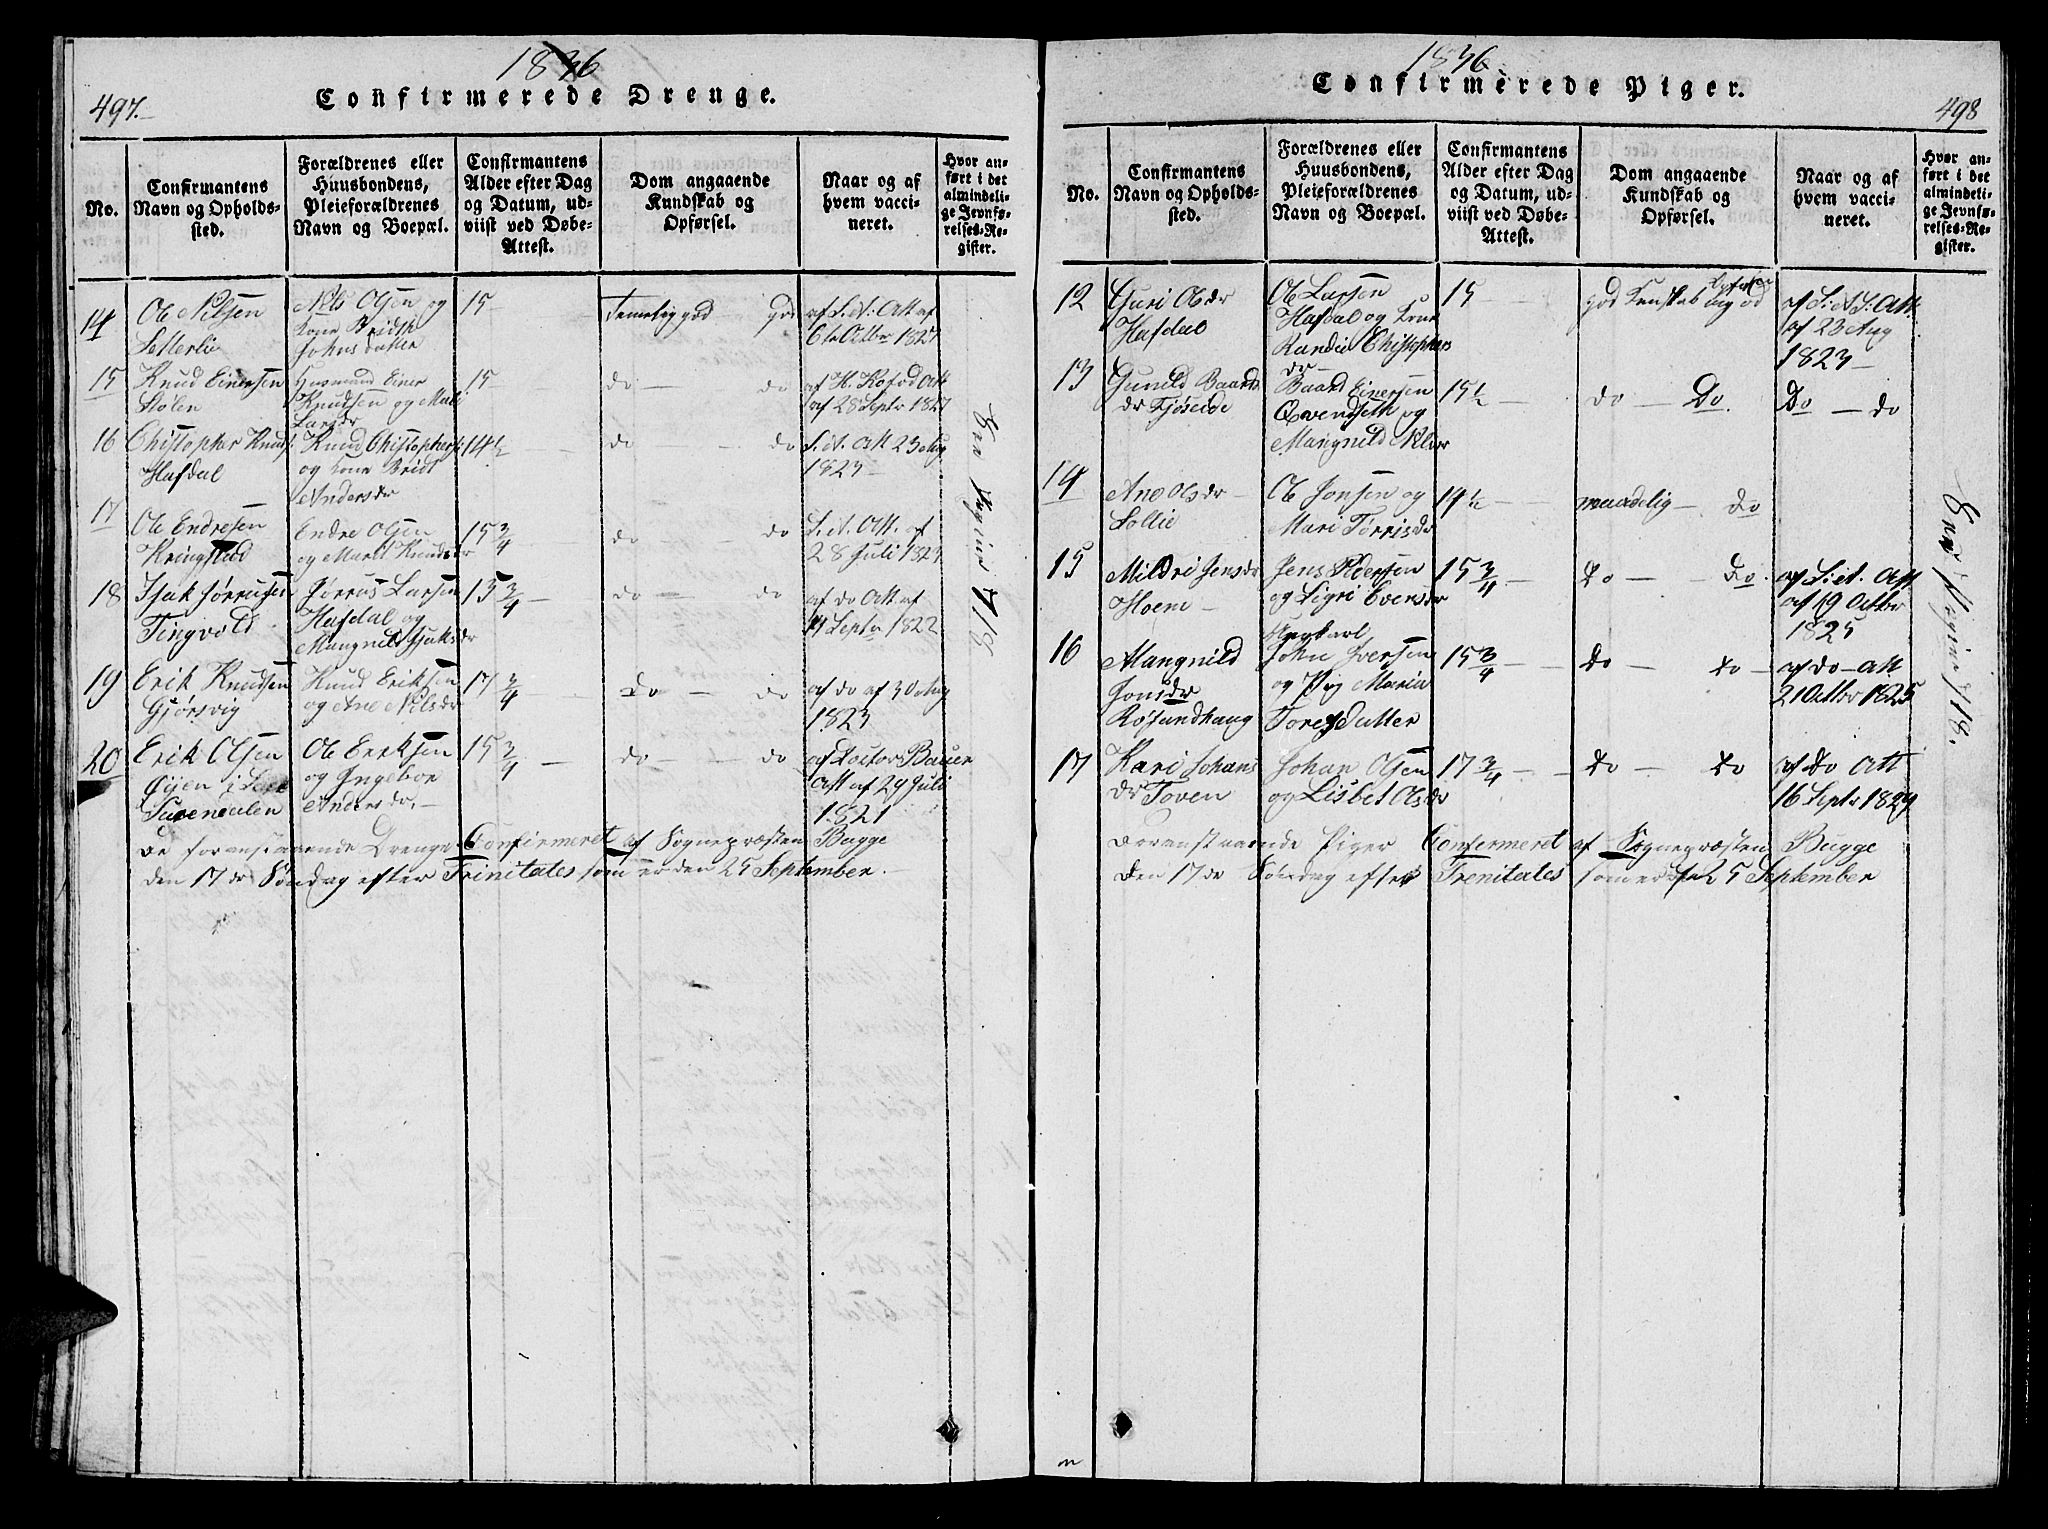 1836
497.
Confirmerede Drenge.
No.
Confirmantens
Navn og Opholds-
sted.
Forældrenes eller
Huusbondens,
Pleieforældrenes
Navn og Boepæl.
Confirmantens
Alder efter Dag
og Datum, ud-
viist ved Døbe-
Attest.
Dom angaaende
Kundskab og
Opførsel.
Naar og af
hvem vacci-
neret.
Hvor an-
ført i det
almindeli-
ge Jevnfø-
relses-Re-
gister.
14
Ole Nilsen
Setterlie
Nils Olsen og
kone Bridth
Johnsdatter
15
Temelig god god
af S. et. Att af
6te Octbr 1827
15
Knud Einersen
Stølen
Husmand Einer
Knudsen og Mali
Larsdr
15
do — do
af H. Kofod Att
af 28 Septr 1827
16
Christopher Knuds.
Hafdal
Knud Christophers.
og kone Bridt
Andersdr
14½
do — do
S. et. Att 23 Aug
1823
17
Ole Endresen
Kringstad
Endre Olsen
og Marit Knudsdr
15 3/4
do — do
S. et. Att. af
28 Juli 1823
18
Isak Jørrusen
Tingvold
Jørrus Larsen
Hafdal og
Mangnild Isaksdr
15 3/4
do — do
af do Att af
11 Septr 1822
19
Erik Knudsen
Gjørsvig
Knud Eriksen
og Ane Nilsdr
17 3/4
do — do
af do af 30 Aug
1823
20
Erik Olsen
Øyen i
Ole Eriksen
og Ingebor
Andersdr.
15 3/4
do — do
af Doctor Bauer
Att af 29 Juli
1821
De foranstaaende Drenge Confirmeret af Sognepræsten Bugge
den 17de Søndag efter Trinitates som er den 25 September.
See Pagina 718
1836
498
Confirmerede Piger.
No.
Confirmantens
Navn og Opholds-
sted.
Forældrenes eller
Huusbondens,
Pleieforældrenes
Navn og Boepæl.
Confirmantens
Alder efter Dag
og Datum, ud-
viist ved Døbe-
Attest.
Dom angaaende
Kundskab og
Opførsel.
Naar og af
hvem vacci-
neret.
Hvor an-
ført i det
almindeli-
ge Jevnfø-
relses-Re-
gister.
12
Guri Olsdr
Hafdal
Ole Larsen
Hafdal og kone
Randi Christophers
dr
15
god Kunskab og
af S. et S. Att.
af 23 Aug
1823
13
Gunild Baards
dr Fjøseide
Baard Einersen
Qvendseth og
Mangnild Nilsdr
15½
do — Do
Do — do
14
Ane Olsdr
Sollie
Ole Jonsen og
Mari Tørrisdr
14½
maadelig — do
15
Mildri Jensdr
Hoem
Jens Pedersen
og Sigri Evensdr
15 3/4
Do — Do.
af S. et. Att
af 19 Octbr
1825
16
Mangnild
Jonsdr
Røsandhaug
Ungkarl
John Iversen
og Pig Maria
Toresdatter
15 3/4
Do — Do
af do Att
21 Octbr 1825
17
Kari Johans
dr Toven
Johan Olsen
og Lisbet Olsdr
17 3/4
Do — Do
af Do Att
16 Septr 1829
Foranstaaende Piger Confermeret af Sognepræsten Bugge
den 17de Søndag efter Trenitates som er den 25 September
See Pagina 718.